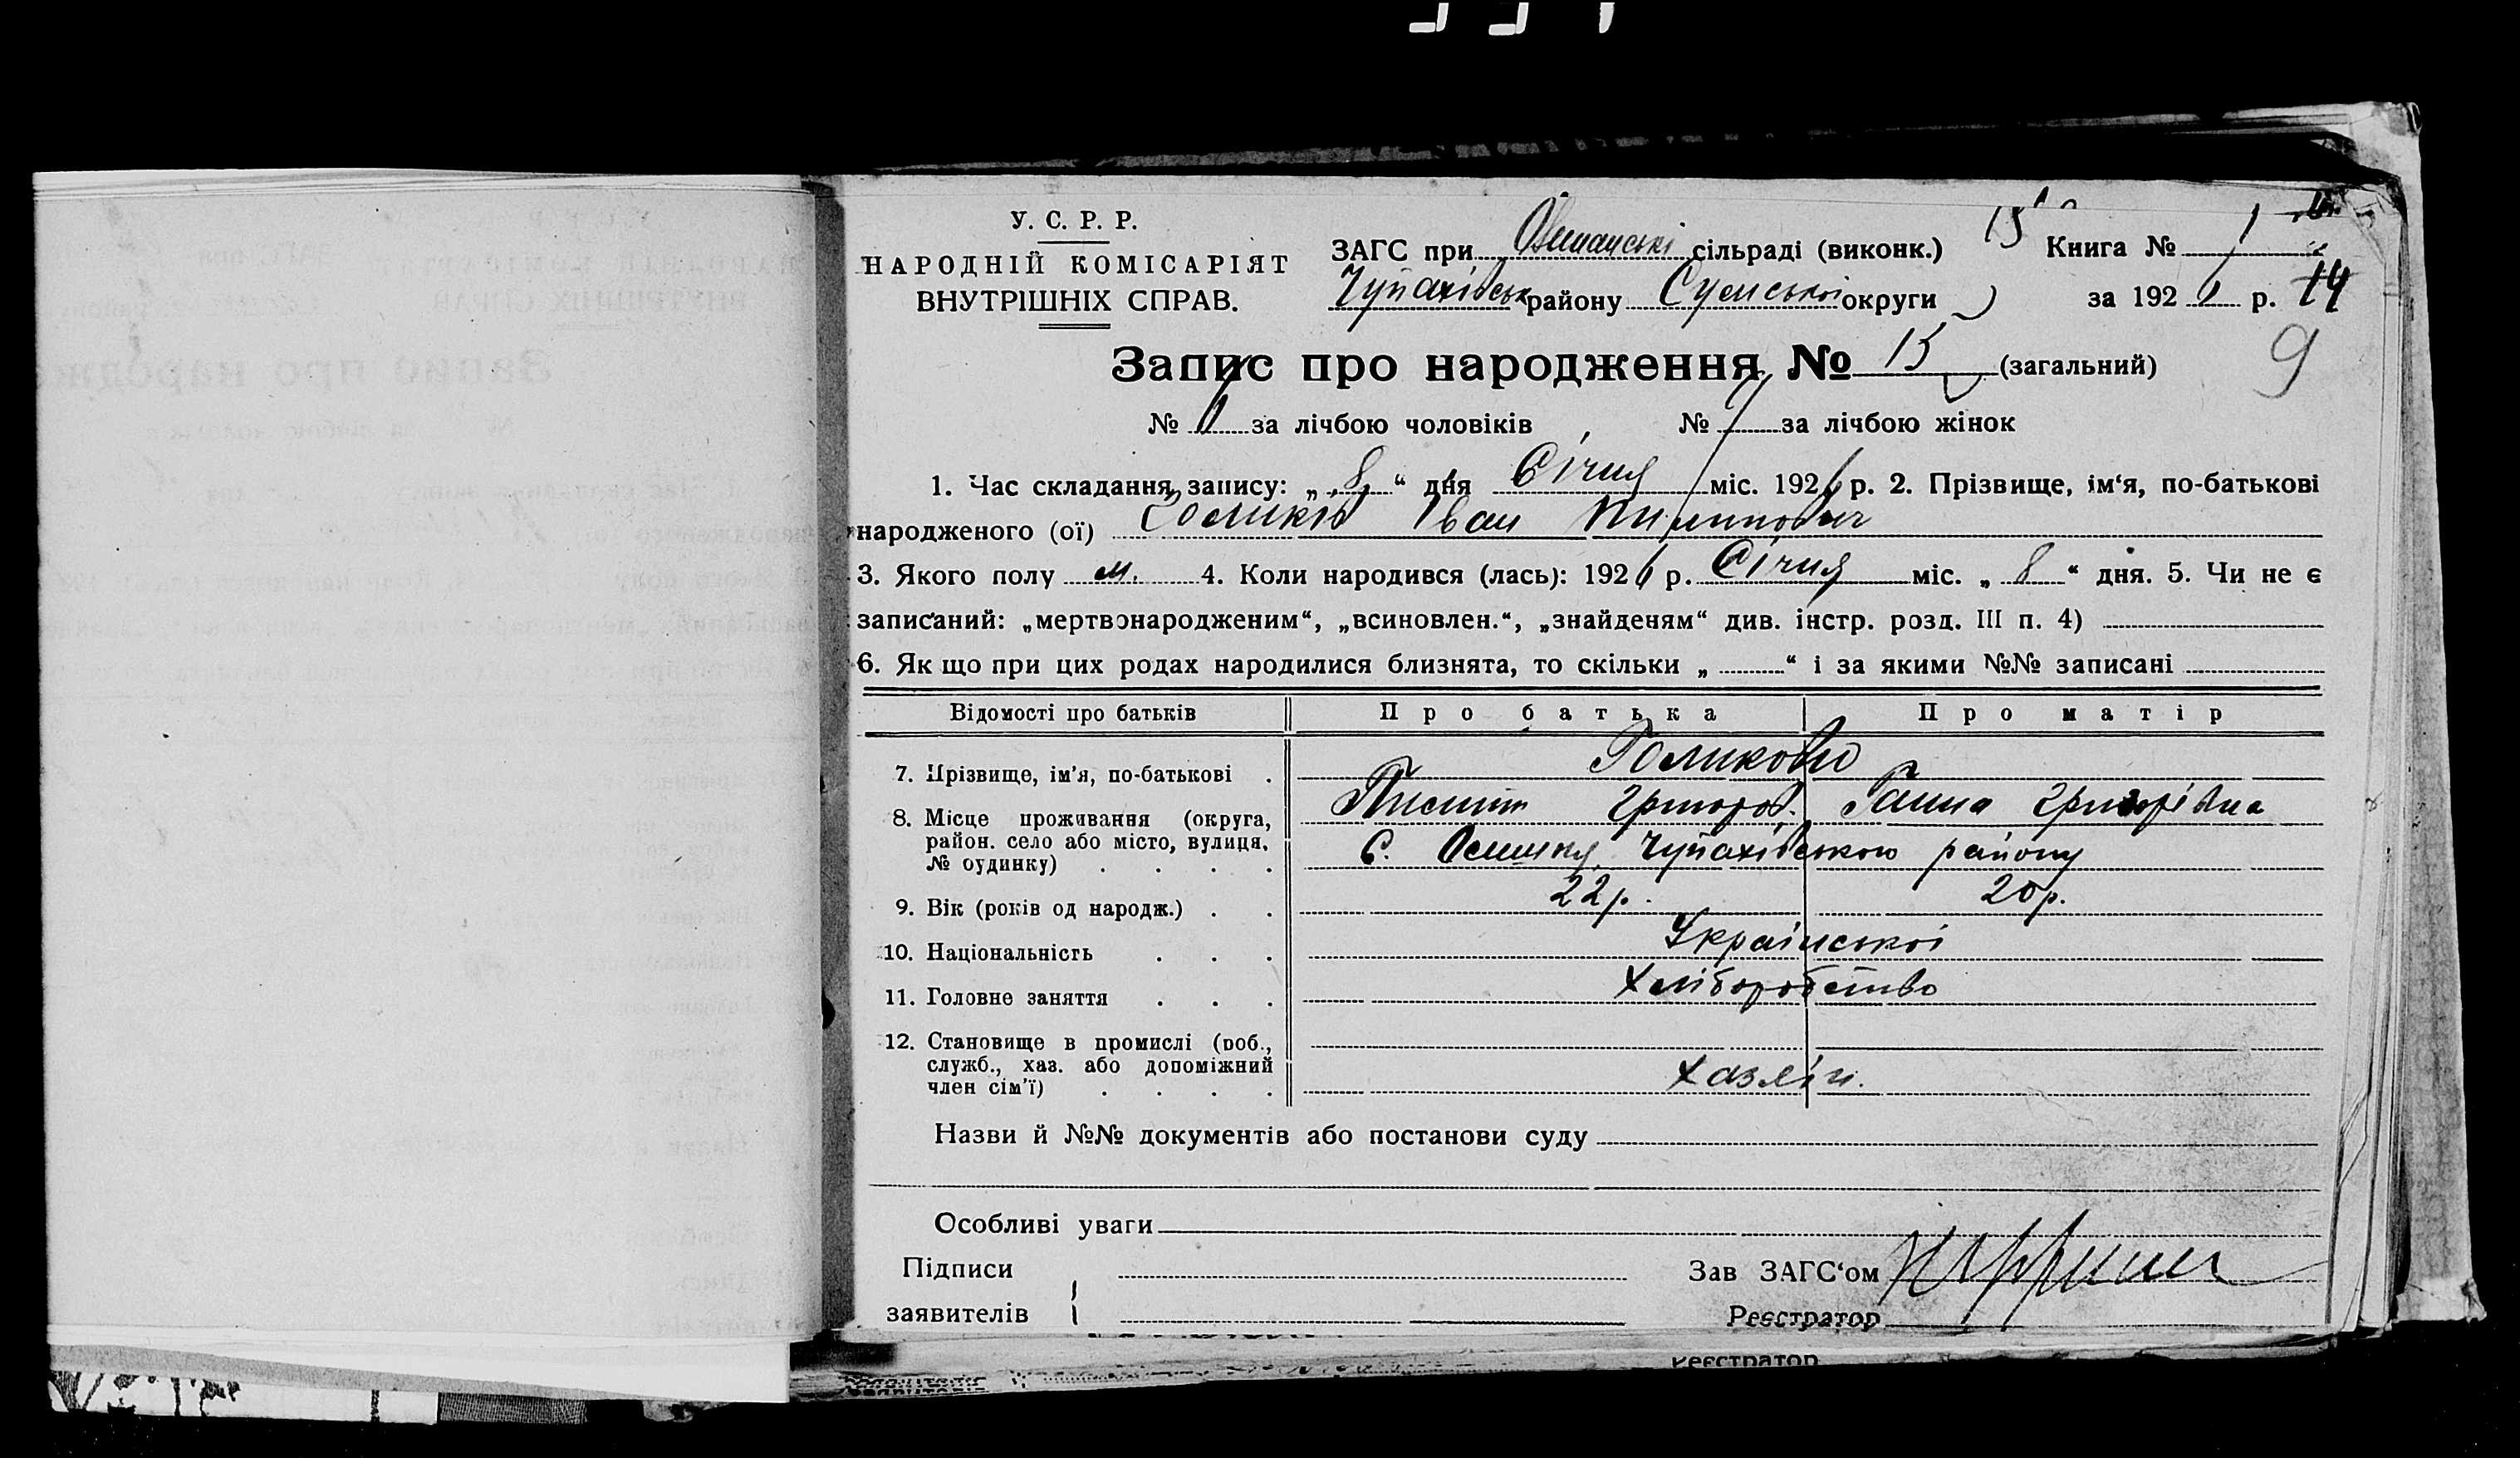 У. С. Р. Р.
НАРОДНІЙ КОМІСАРІЯТ
ВНУТРІШНІХ СПРАВ.
ЗАГС при сільраді (виконк.) 15 Книга № 1
Чупахівськ району Сумської округи за 192 р. 14
Запис про народження № 15 (загальний) 9
№ за лічбою чоловіків № за лічбою жінок
1. Час складання запису: „ 8 “ дня Січня міс. 1926 р. 2. Прізвище, ім‘я, по-батькові
народженого (ої) Голиків Іван Пилипович
3. Якого полу м. 4. Коли народився (лась): 1926 р. Січня міс. „ 8 “ дня. 5. Чи не є
записаний: „мертвонародженим“, „всиновлен.“, „знайденям“ див. інстр. розд. III п. 4)
6. Як що при цих родах народилися близнята, то скільки „ “ і за якими №№ записані
Відомості про батьків Про батька Про матір
7. Прізвище, ім'я, по-батькові . Голикови
Пилип Григоров. Ганна Григорівна
8. Місце проживання (округа,
район. село або місто, вулиця,
№ будинку) . . . . С. Чупахівського району
9. Вік (років од народж.) . . 22 р. 20 р.
10. Національність . . . Української
11. Головне заняття . . . Хліборобство
12. Становище в промислі (роб.,
служб., хаз. або допоміжний
член сім'ї) . . . .
Назви й №№ документів або постанови суду
Особливі уваги
Підписи Зав ЗАГС‘ом
заявителів Реєстратор
Реєстратор